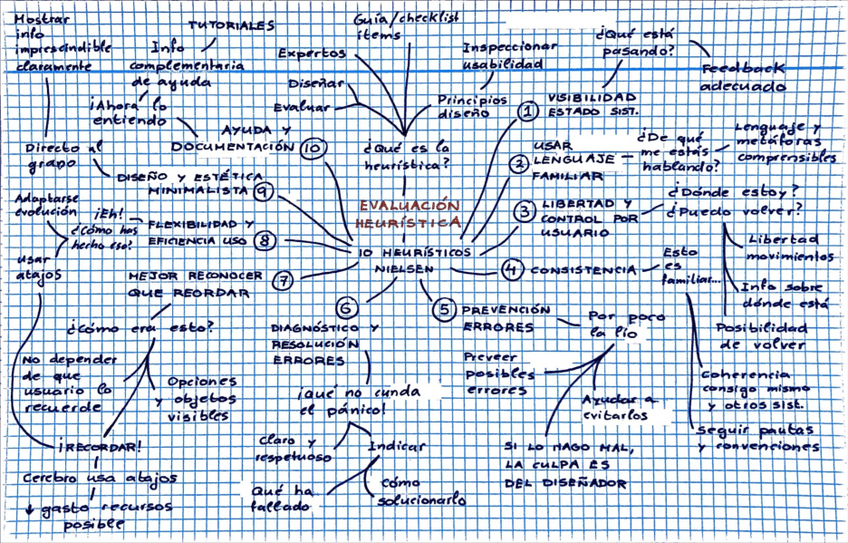 Mostrar
info
imprescindible
claramente
Directo al
grano
TUTORIALES
Info
complementaria
de ayuda
¡Ahora! lo
entiendo
AYUDA Y
DOCUMENTACIÓN 10
Guía/checklist
ítems
Expertos
Diseñar
Evaluar
Inspeccionar
usabilidad
Principios
diseño
¿Qué es la
heurística?
EVALUACIÓN
HEURÍSTICA
10 HEURÍSTICOS
NIELSEN
¿Qué está
pasando?
Feedback
adecuado
1 VISIBILIDAD
ESTADO SIST.
USAR
2 LENGUAJE
FAMILIAR
¿De qué
me estás
hablando?
Lenguaje y
metáforas
comprensibles
3 LIBERTAD Y
CONTROL POR
USUARIO
¿Dónde estoy?
¿Puedo volver?
Libertad
movimientos
Info sobre
dónde está
Posibilidad
de volver
4 CONSISTENCIA
Esto
es
familiar...
Coherencia
consigo mismo
y otros sist.
Seguir pautas
y convenciones
5 PREVENCIÓN
ERRORES
Por poco
la lío
Preveer
posibles
errores
Ayudar a
evitarlos
SI LO HAGO MAL,
LA CULPA ES
DEL DISEÑADOR
6
DIAGNÓSTICO Y
RESOLUCIÓN
ERRORES
¡Qué no cunda
el pánico!
Claro y
respetuoso
Indicar
Qué ha
fallado
Cómo
solucionarlo
MEJOR RECONOCER 7
QUE REORDAR
¿Cómo era esto?
No depender
de que
usuario lo
recuerde
Opciones
y objetos
visibles
¡RECORDAR!
Cerebro usa atajos
↓ gasto recursos
posible
FLEXIBILIDAD Y
EFICIENCIA USO 8
¡Eh!
¿Cómo has
hecho eso?
Adaptarse
evolución
Usar
atajos
DISEÑO Y ESTÉTICA
MINIMALISTA 9